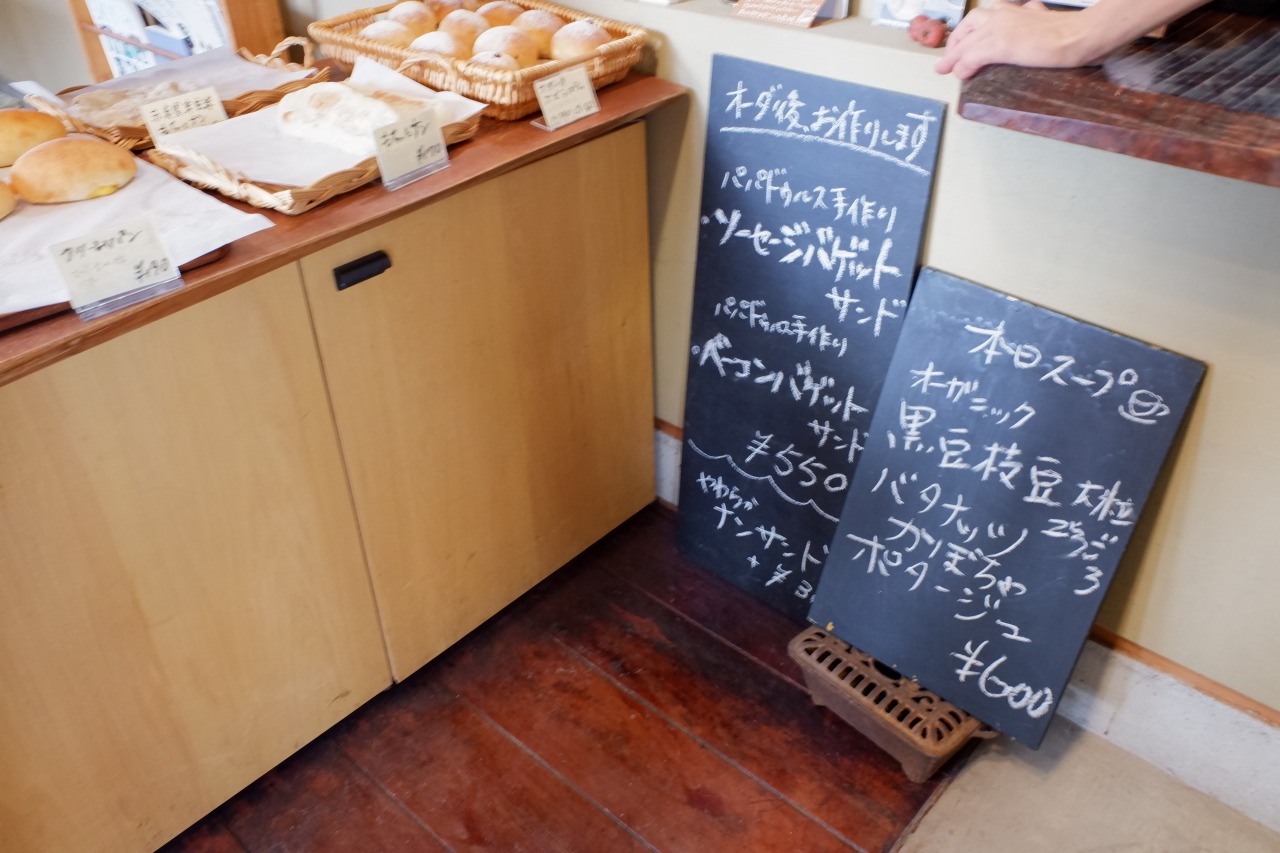 クリームパン
¥190
¥170
オーダ後、お作りします
パパドゥルス手作り
・ソーセージバゲット
サンド
パパドゥルス手作り
・ベーコンバゲット
サンド
¥550
やわらか
ナンサンド
+¥3
本日スープ
オーガニック
黒豆枝豆大粒
バタナッツ ごろごろ
かりぼちゃ
ポタージュ
¥600